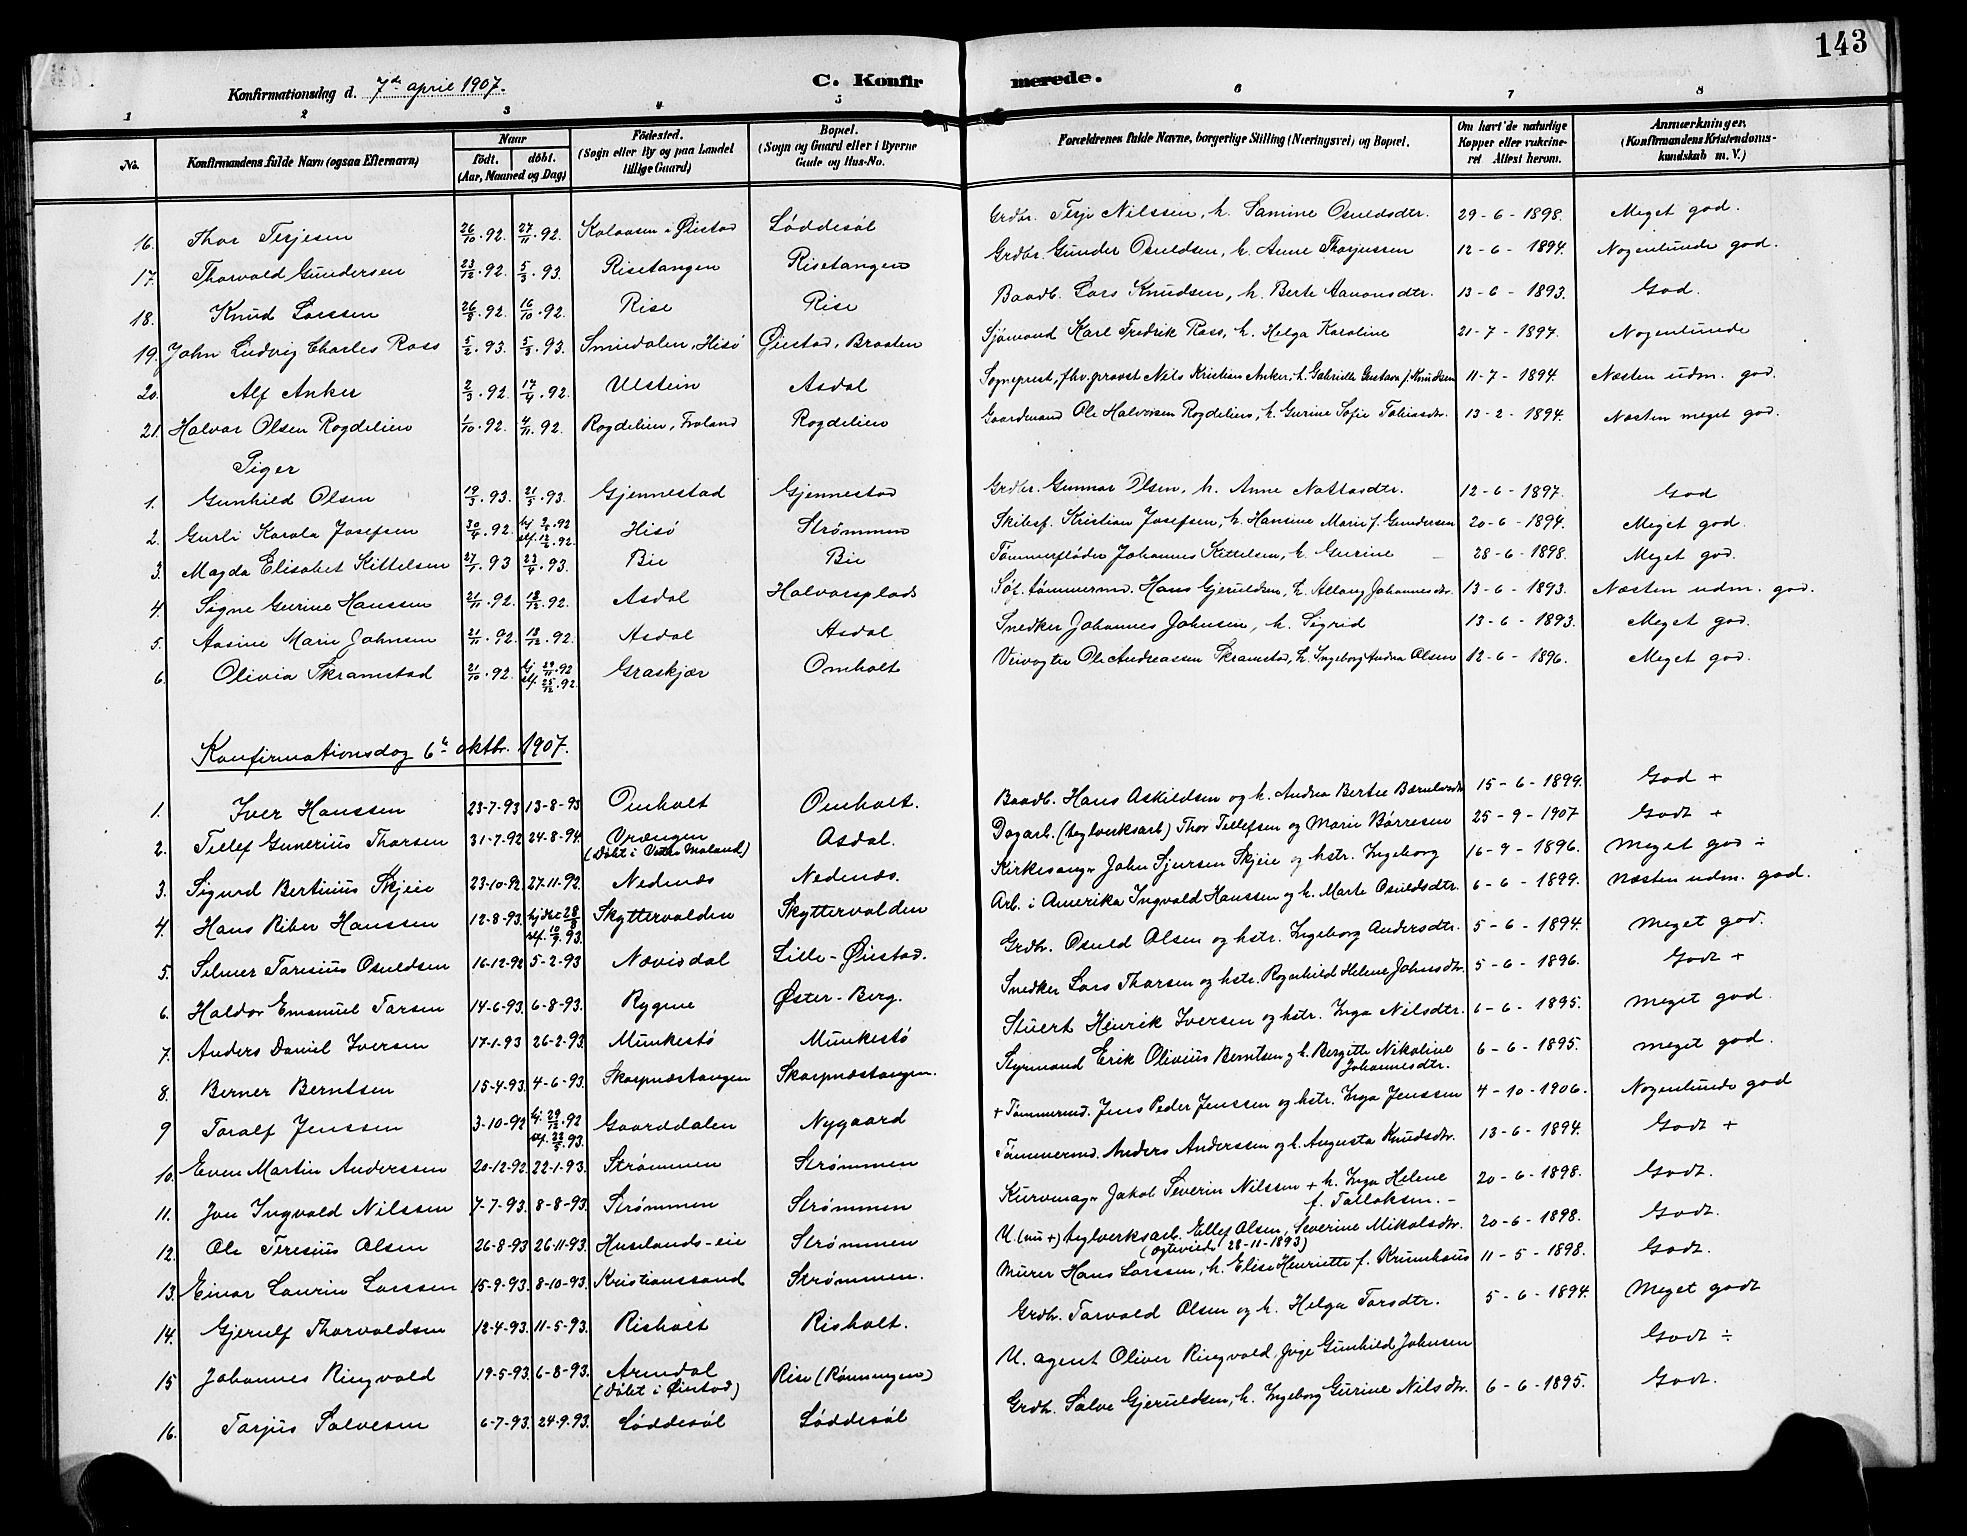 143
Konfirmationsdag d. 7de april 1907.
C. Konfirmerede.
1 2 3 4 5 6 7 8
No. Konfirmandens fulde Navn (ogsaa Efternavn) Naar født. døbt. (Aar, Maaned og Dag) Fødested. (Sogn eller By og paa Landet tillige Gaard) Bopæl. (Sogn og Gaard eller i Byerne Gade og Hus-No. Forældrenes fulde Navne, borgerlige Stilling (Næringsvei) og Bopæl. Om havt de naturlige Kopper eller vaccineret Attest herom. Anmærkninger. (Konfirmandens Kristendomskundskab m. V.)
16. Thor Terjesen 26/10.92. 27/11.92. Kalaasen i Øiestad Løddesøl Grdbr. Terje Nilssen, h. Samine Osuldsdtr. 29-6-1898. Meget god.
17. Thorvald Gundersen 23/12.92. 5/3.93. Risetangen Risetangen Grdbr. Gunder Osuldsen, h. Anne Thorjussen 12-6-1894. Nogenlunde god.
18. Knud Larssen 26/8.92. 16/10.92. Rise Rise Baadb. Lars Knudsen, h. Berte Aanonsdtr. 13-6-1893. God.
19. John Ludvig Charles Rass 5/2.93. 5/3.93. Smiedalen, Hisø Øiestad, Braaten Sjømand Karl Fredrik Rass, h. Helga Karoline 21-7-1894. Nogenlunde
20. Alf Anker 2/3.92. 17/4.92. Ulstein Asdal Sogneprest, fhv. provst Nils Kristian Anker, h. Gabrielle Gustava f. Knudsen 11-7-1894. Næsten udm. god.
21. Halvar Olsen Rogdelien 1/10.92. 4/11.92. Rogdelien, Froland Rogdelien Gaardmand Ole Halvorsen Rogdelien, h. Gurine Sofie Tobiasdtr. 13-2-1894. Næsten meget god.
Piger
1. Gunhild Olsen 19/3.93. 21/5.93. Gjennestad Gjennestad Grdbr. Gunnar Olsen, h. Anne Nattasdtr. 12-6-1897. God
2. Gurli Karola Josefsen 30/4.92. Hisø Strømmen Skibsf. Kristian Josefsen, h. Hansine Marie f. Gundersen 20-6-1894. Meget god.
3. Magda Elisabet Kittelsen 27/1.93 23/4.93. Bie Bie Tømmerfløder Johannes Kittelsen, h. Gurine – 28-6-1898. Meget god.
4. Signe Gurine Hanssen 21/11.92. 18/12.92. Asdal Halvorsplads Søf. tømmermd. Hans Gjeruldsen, h. Allaug Johannesdtr. 13-6-1893. Næsten udm. god.
5. Aasine Marie Johnsen 21/11.92. 18/12.92. Asdal Asdal Snedker Johannes Johnsen, h. Sigrid 13-6-1893. Meget god.
6. Olivia Skramstad 21/10.92. hj. 29/11.92 slf. 25/12.92. Graskjær Omholt Veivogter Ole Andreassen Skramstad, h. Ingeborg Andrea Olsen 12-6-1896. Meget god.
Konfirmationsdag 6te oktbr. 1907.
1. Iver Hanssen 23-7-93 13-8-93 Omholt Omholt. Baadb. Hans Askildsen og h. Andrea Bertee 15-6-1899. God +
2. Tellef Gunerius Thorsen 31-7-92 24-8-94. Vrængen (Døbt i Østre Moland) Asdal. Dagarb. (teglverksarb) Thor Tellefsen og Marie Børresen 25-9-1907 Godt +
3. Sigurd Bertinius Skjeie 23-10-92. 27-11-92. Nedenæs Nedenæs. Kirkesanger John Sjursen Skjeie og hstr. Ingeborg 16-9-1896. Meget god ÷
4. Hans Riber Hanssen 12-8-93. hjdbt 28/8 slf. 10/9.93. Skyttervolden Skyttervolden Arb. i Amerika Ingvald Hanssen og h. Marte Osuldsdtr. 6-6-1899. Næsten udm. god.
5. Selmer Taresius Osuldsen 16-12-92 5-2-93 Nævisdal Lille-Øiestad. Grdbr. Osuld Olsen og hstr. Ingeborg Andersdtr. 5-6-1894. Meget god.
6. Haldor Emanuel Tarsen 14-6-93. 6-8-93. Rygene Øster-Berg. Snedker Lars Thorsen og hstr. Ragnhild Helene Johnsdtr. 5-6-1896. Godt +
7. Anders Daniel Iversen 17-1-93 26-2-93. Munkestø Munkestø Stuert Henrik Iversen og hstr. Inga Nilsdtr. 6-6-1895. Meget god.
8. Berner Berntsen 15-4-93. 4-6-93. Skarpnæstangen Skarpnæstangen. Styrmand Erik Olivius Berntsen og h. Bergitte Nikoline Johannesdtr. 6-6-1895. Meget god.
9 Toralf Jenssen 3-10-92 hj. 29/12.92 Gaarddalen Nygaard + Tømmermd. Jens Peder Jenssen og hstr. Inga Jenssen 4-10-1906. Nogenlunde god
10. Even Martin Anderssen 20-12-92. 22-1-93. Strømmen Strømmen Tømmermd. Anders Anderssen og h. Augusta Knudsdtr. 13-6-1894. Godt +
11. Jon Ingvald Nilssen 7-7-93. 8-8-93. Strømmen Strømmen Kurvmager Jakob Severin Nilssen + h. Inga Helene f. Tallaksen. – 20-6-1898. Godt.
12. Ole Teresius Olsen 26-8-93 26-11-93. Huselands-eie Strømmen U. (nu +) teglverksarb. Ellef Olsen, Severine Mikalsdtr. (ægteviede 28-11-1893) 20-6-1898. Godt.
13. Einar Laurin Larssen 15-9-93. 8-10-93. Kristianssand Strømmen. Murer Hans Larssen, h. Elise Henriette f. Krumhaus 11-5-1898. Godt.
14. Gjerulf Thorvaldsen 12-4-93. 11-5-93. Risholt Risholt. Grdbr. Tarvald Olsen og h. Helga Tarsdtr. 5-6-1894. Meget godt
15 Johannes Ringvold 19-5-93. 6-8-93. Arendal (døbt i Øiestad) Rise (Rønningen) U. agent Oliver Ringvold, pige Gunhild Johnsen Godt ÷
16. Tarjus Salvesen 6-7-93. 24-9-93. Løddesøl Løddesøl Grdb. Salve Gjeruldsen, h. Ingeborg Gurine Nilsdtr. 6-6-1895. Godt.